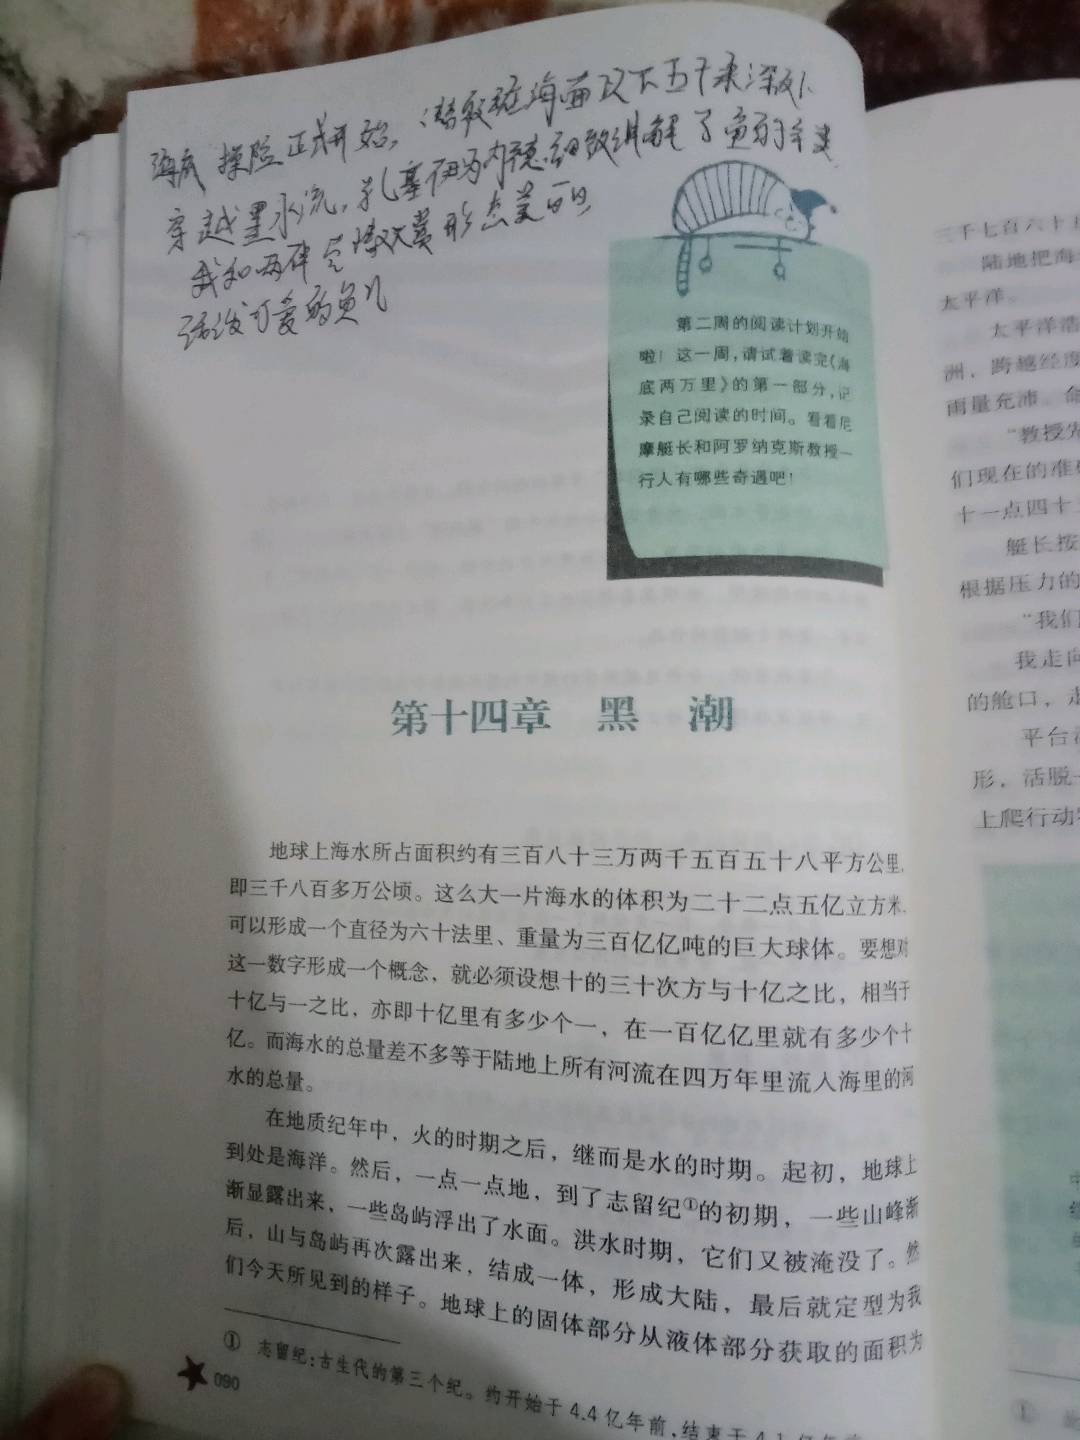 海底探险正式开始，潜艇在海面以下五十米深处
穿越黑水流，孔塞伊为内德细致讲解了鱼的分类
我和两伴尽情欣赏形态美丽
活泼可爱的鱼儿
第二周的阅读计划开始
啦！这一周，请试着读完《海
底两万里》的第一部分，记
录自己阅读的时间。看看尼
摩艇长和阿罗纳克斯教授一
行人有哪些奇遇吧！
第十四章 黑 潮
地球上海水所占面积约有三百八十三万两千五百五十八平方公里，
即三千八百多万公顷。这么大一片海水的体积为二十二点五亿立方米，
可以形成一个直径为六十法里、重量为三百亿亿吨的巨大球体。要想对
这一数字形成一个概念，就必须设想十的三十次方与十亿之比，相当于
十亿与一之比，亦即十亿里有多少个一，在一百亿亿里就有多少个十
亿。而海水的总量差不多等于陆地上所有河流在四万年里流入海里的河
水的总量。
在地质纪年中，火的时期之后，继而是水的时期。起初，地球上
到处是海洋。然后，一点一点地，到了志留纪①的初期，一些山峰渐
渐显露出来，一些岛屿浮出了水面。洪水时期，它们又被淹没了。然
后，山与岛屿再次露出来，结成一体，形成大陆，最后就定型为我
们今天所见到的样子。地球上的固体部分从液体部分获取的面积为
① 志留纪：古生代的第三个纪。约开始于 4.4 亿年前，结束于 4.1 亿年前
090
三千七百六十五
陆地把海
太平洋。
太平洋浩
洲，跨越经度
雨量充沛。命
“教授先
们现在的准确
十一点四十
艇长按
根据压力的
“我们
我走向
的舱口，走
平台
形，活脱
上爬行动物
①